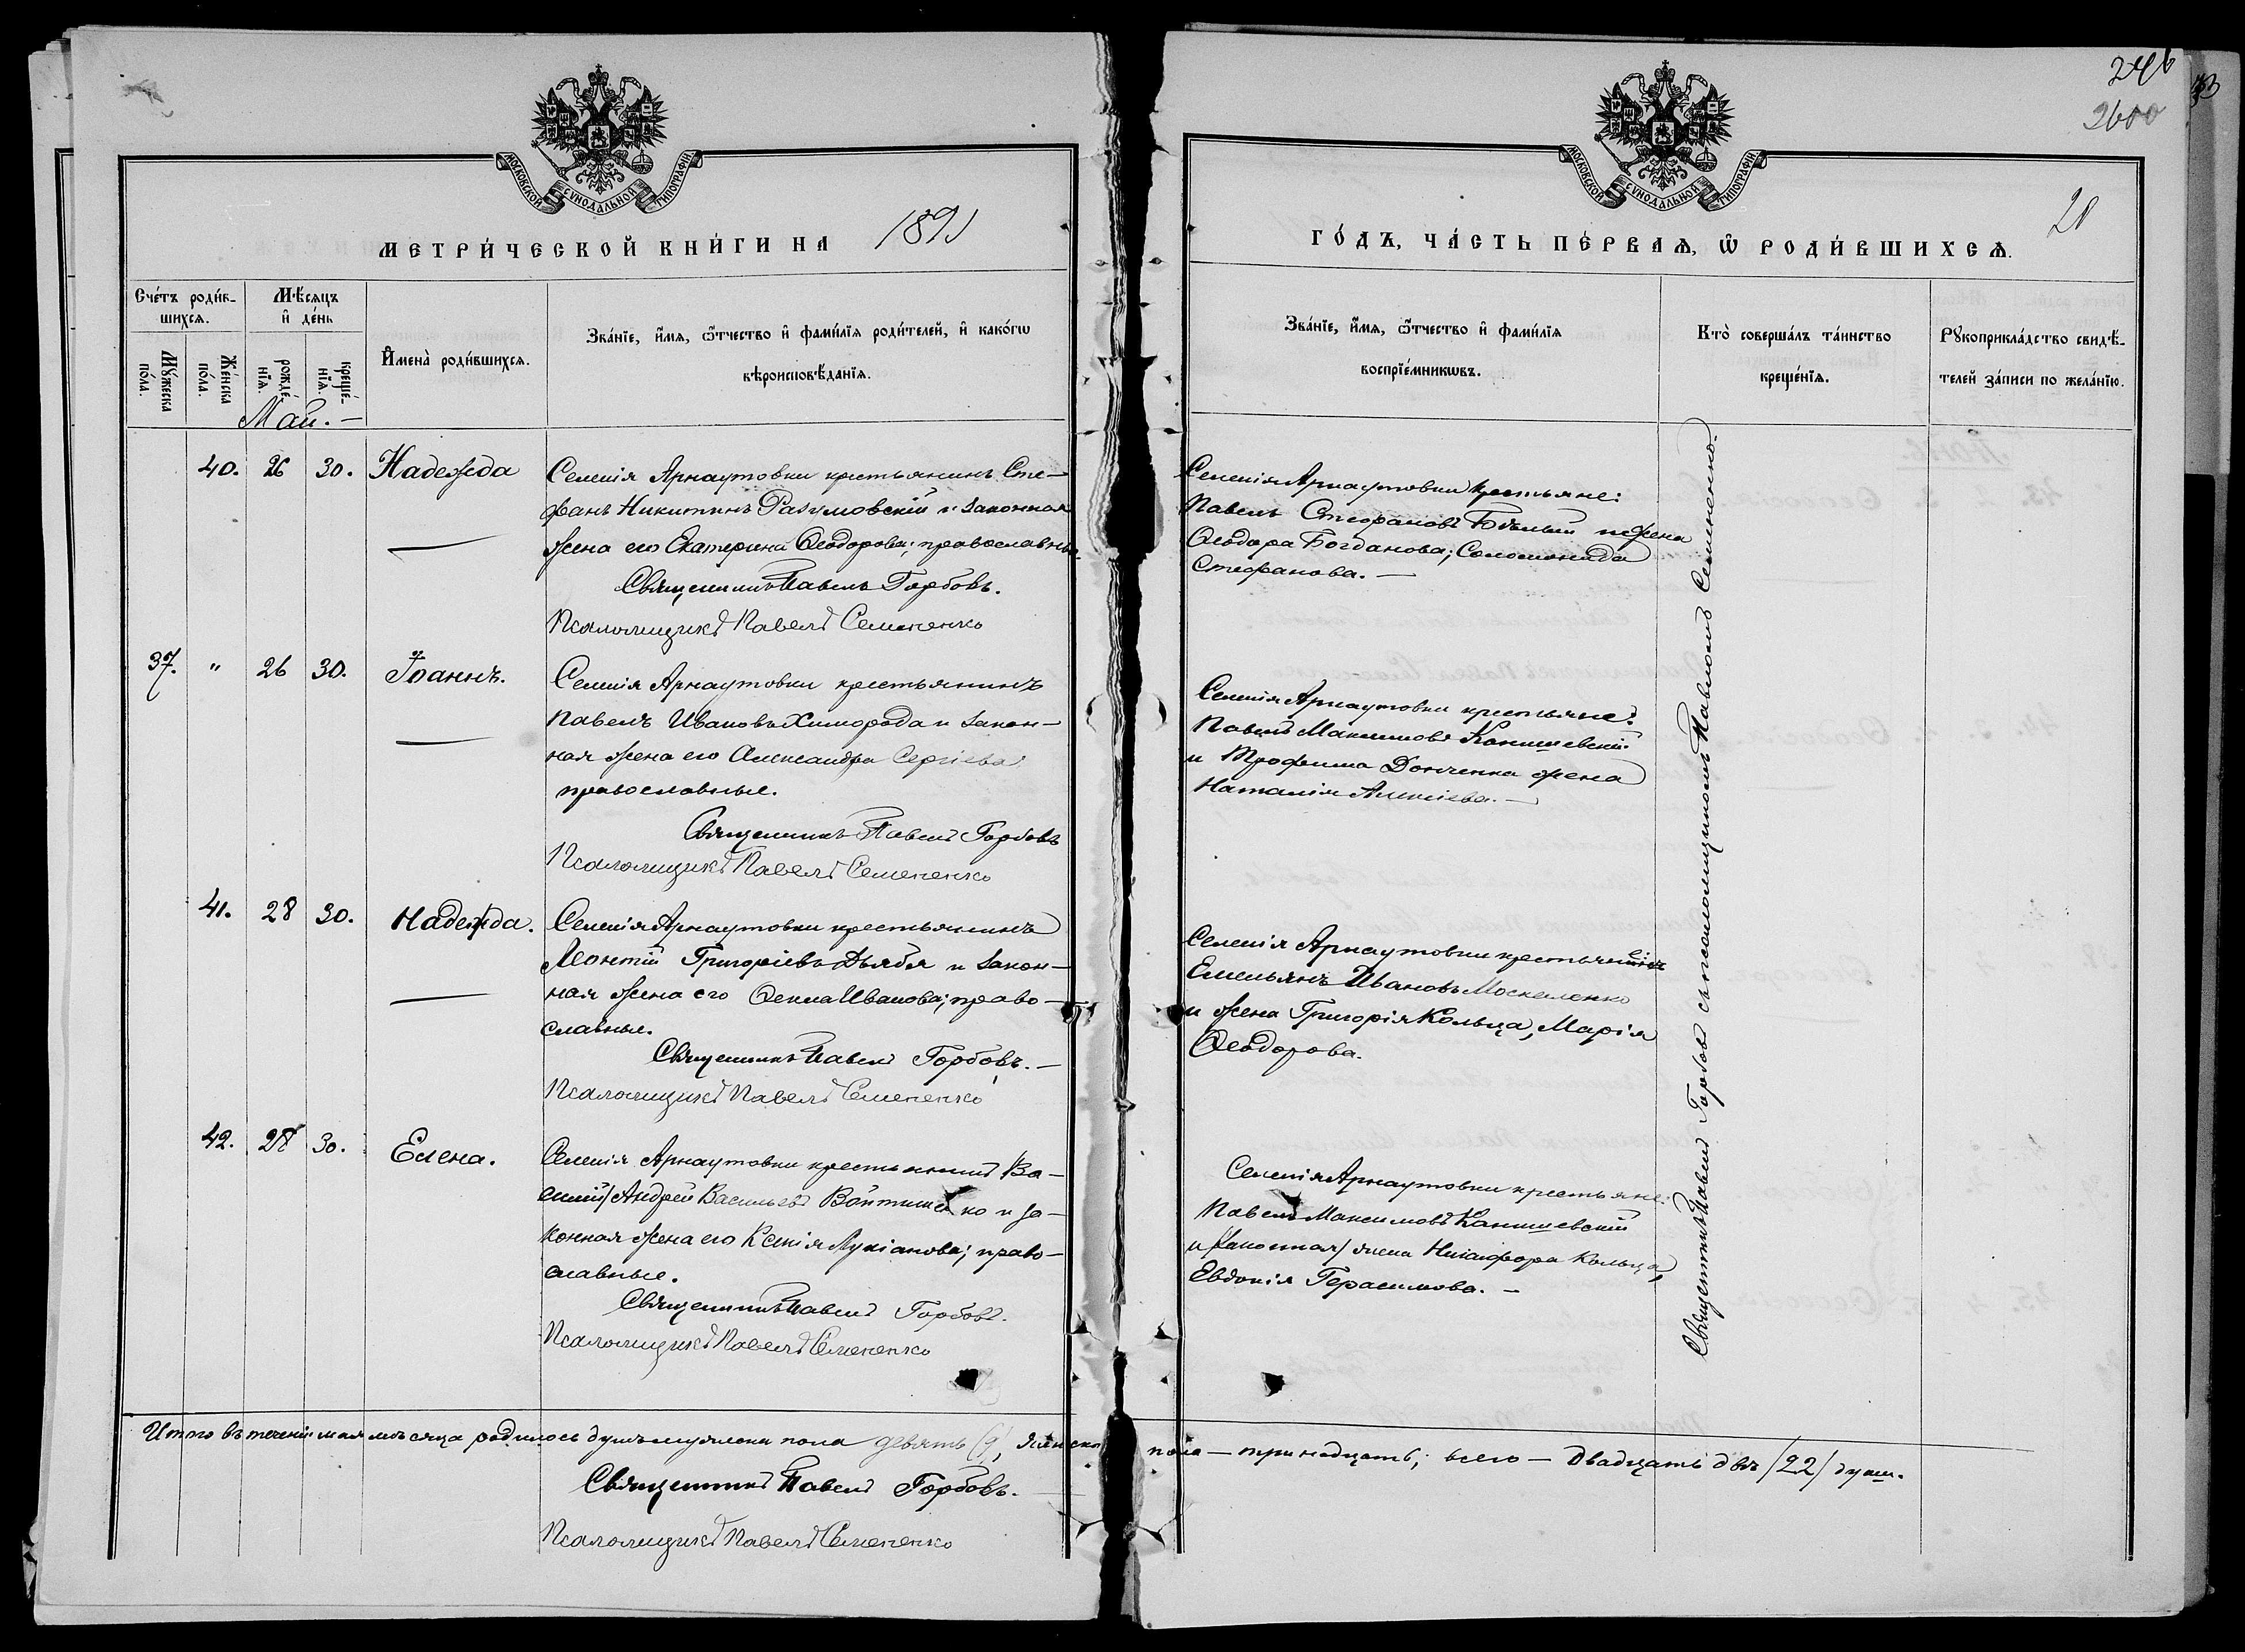 246
2600
20
МОСКОВСКОЙ СѴНОДАЛЬНОЙ ТИПОГРАФІИ
МОСКОВСКОЙ СѴНОДАЛЬНОЙ ТИПОГРАФІИ
МЕТРИ́ЧЕСКОЙ КНИ́ГИ НА 1891
ГО́ДЪ, ЧА́СТЬ ПЕ́РВАѦ, Ѡ҆ РОДИ́ВШИХСѦ.
Сче́тъ роди́в-
шихсѧ.
Мꙋ́жеска по́ла.
Же́нска по́ла.
Мѣ́сѧцъ
и҆ де́нь
рожде́-нїѧ.
креще́-нїѧ.
И҆мена̀ роди́вшихсѧ.
Зва́нїе, и҆́мѧ, ѻ҆́тчество и҆ фами́лїѧ роди́телей, и҆ како́гѡ
вѣроисповѣ́данїѧ.
Зва́нїе, и҆́мѧ, ѻ҆́тчество и҆ фами́лїѧ
воспрїе́мникѡвъ.
Кто̀ соверша́лъ та́инство
креще́нїѧ.
Рꙋкоприкла́дство свидѣ́-
телей за́писи по жела́нїю.
Май. —
40. 26 30. Надежда
Селенія Арнаутовки крестьянинъ Сте-
фанъ Никитинъ Разумовскій и законная
жена его Екатерина Ѳеодорова; православные
Священникъ Павелъ Горбовъ.
Псаломщикъ Павелъ Семененко
Селенія Арнаутовки крестьяне:
Павелъ Стефановъ Бѣлый и жена
Ѳеодора Богданова; Соломонида
Стефанова. —
37. " 26 30. Іоаннъ.
Селенія Арнаутовки крестьянинъ
Павелъ Ивановъ Химорода и закон-
ная жена его Александра Сергіева
православные.
Священникъ Павелъ Горбовъ
Псаломщикъ Павелъ Семененко
Селенія Арнаутовки крестьяне:
Павелъ Максимовъ Канишевскій
и Трофима Донченка жена
Наталія Алексіева. —
41. 28 30. Надежда.
Селенія Арнаутовки крестьянинъ
Леонтій Григоріевъ Дзябя и закон-
ная жена его Ѳекла Иванова; право-
славные.
Священникъ Павелъ Горбовъ. —
Псаломщикъ Павелъ Семененко
Селенія Арнаутовки крестьянинъ
Емельянъ Ивановъ Москаленко
и жена Григорія Кольца, Марія
Ѳеодорова.
42. 28 30. Елена.
Селенія Арнаутовки крестьянинъ /Ва-
силій/ Андрей Васильевъ Войтишко и за-
конная жена его Ксенія Лукіанова; право-
славные.
Священникъ Павелъ Горбовъ.
Псаломщикъ Павелъ Семененко
Селенія Арнаутовки крестьяне:
Павелъ Максимовъ Канишевскій
и /законная/ жена Никифора Кольца,
Евдокія Герасимова. —
Священникъ Павелъ Горбовъ съ псаломщикомъ Павломъ Семененко.
Итого въ теченіи мая мѣсяца родилось душъ мужеска пола девять (9), женска пола — тринадцать; всего — двадцать двѣ /22/ души.
Священникъ Павелъ Горбовъ.
Псаломщикъ Павелъ Семененко